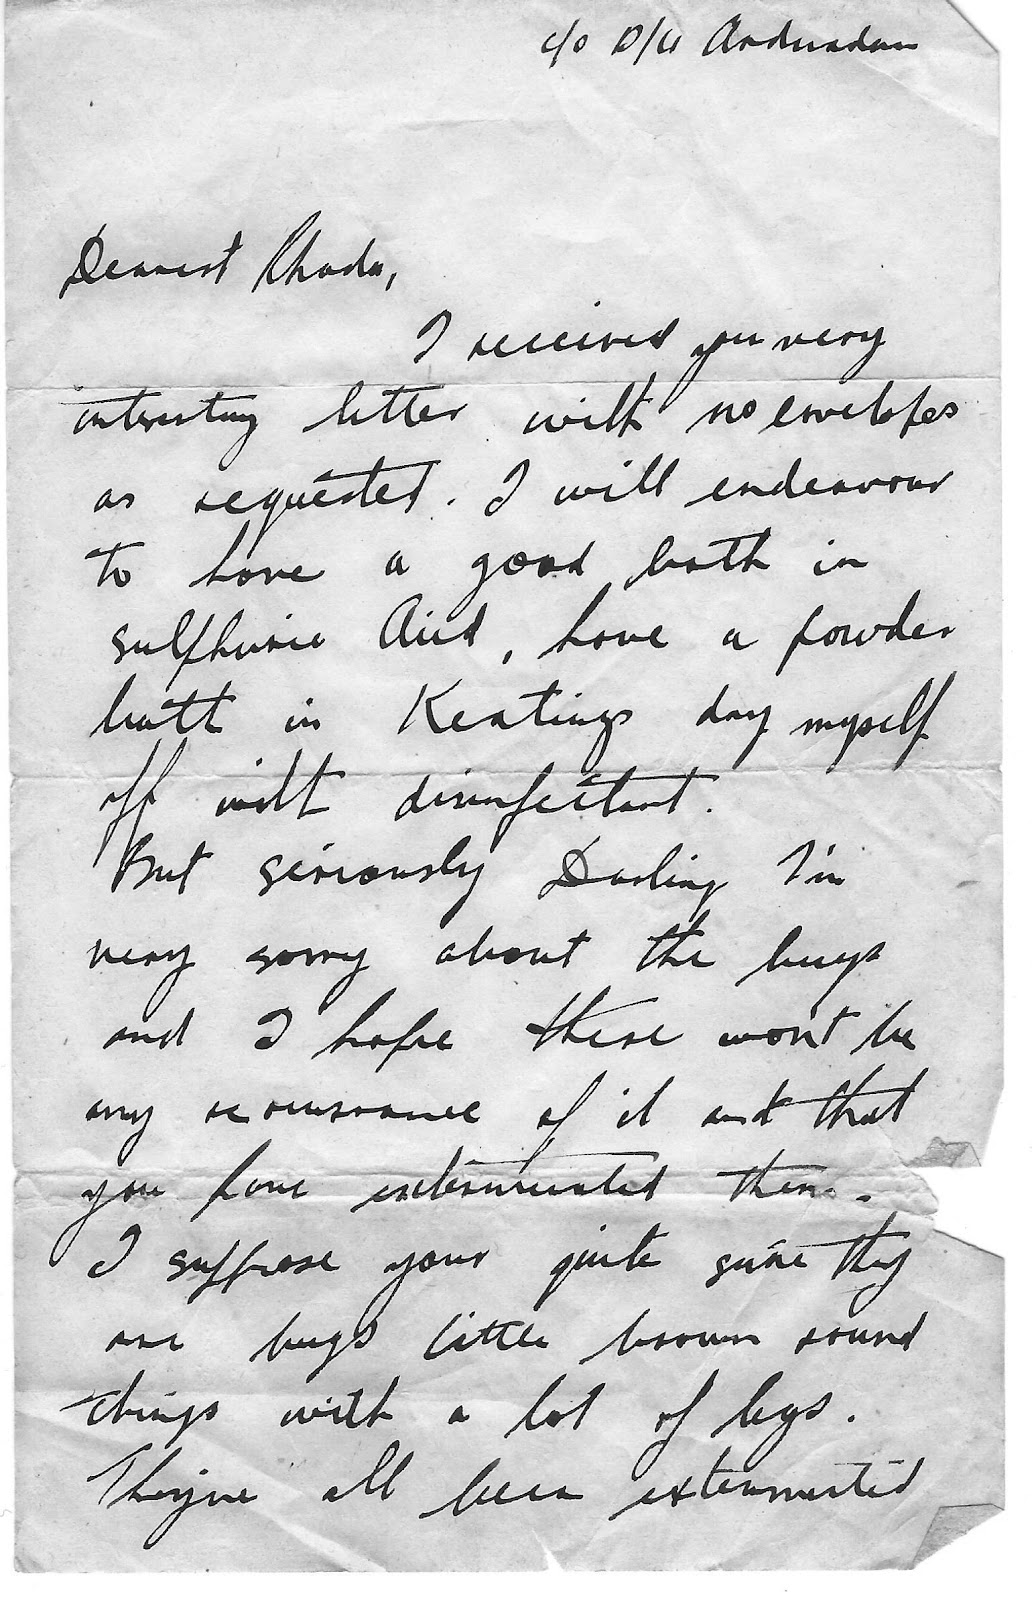 c/o D/O Ardnadam
Dearest Rhoda,
I received you very
interesting letter with no envelopes
as requested. I will endeavour
to have a good bath in
sulphuric Acid, have a powder
bath in Keatings day myself
off with disinfectant.
But seriously Darling I'm
very sorry about the bugs
and I hope there won't be
any recurrance of it and that
you have exterminated them.
I suppose your quite sure they
are bugs little brown round
things with a lot of legs.
They've all been exterminated